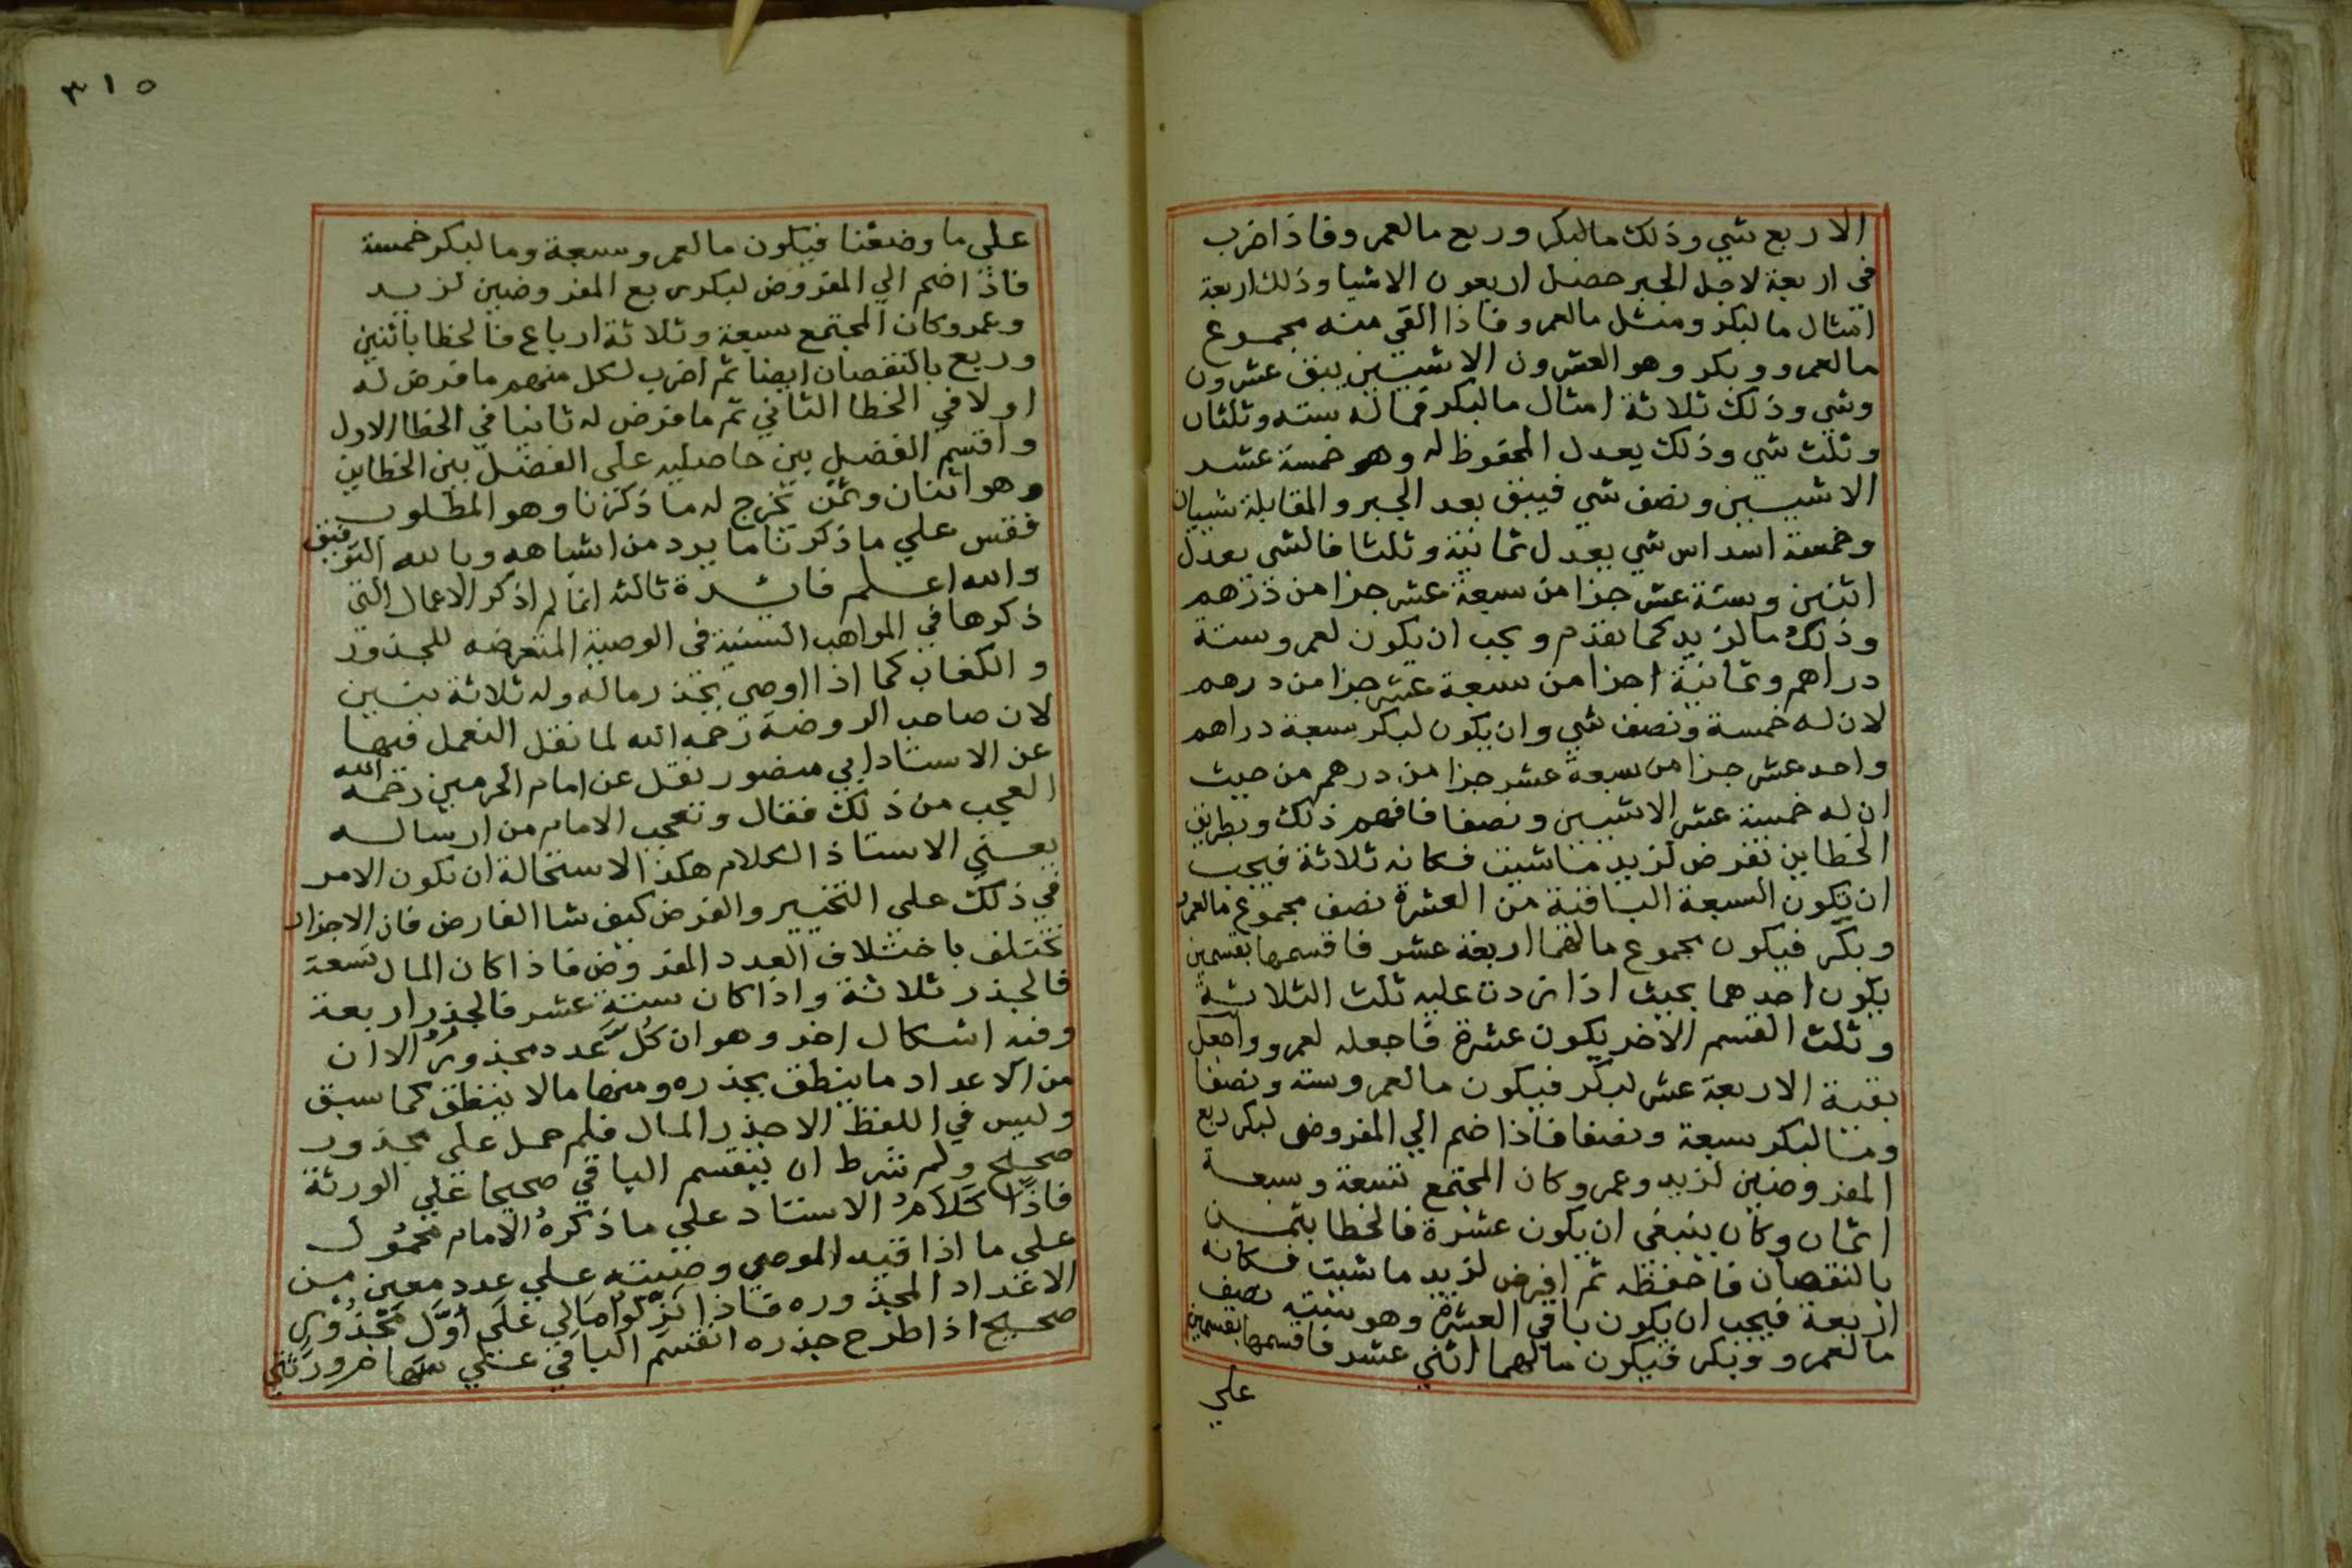 الا ربع شي وذلك مالبكر وربع مالعمرو فاذا ضرب
في اربعة لاجل الجبر حصل اربعون الا شيا وذلك اربعة
امثال مالبكر ومثل مالعمرو فاذا القي منه مجموع
مالعمرو وبكر وهو العشرون الا شيين يبق عشرون
وشي وذلك ثلاثة امثال مالبكر فماله سته وثلثان
وثلث شي وذلك يعدل المحفوظ له وهو خمسة عشر
الا شيين ونصف شي فيبق بعد الجبر والمقابلة شييان
وخمسة اسداس شي يعدل ثمانية وثلثا فالشي يعدل
اثنين وستة عشر جزا من سبعة عشر جزا من درهم
وذلك مالزيد كما تقدم ويجب ان يكون لعمرو ستة
دراهم وثمانية اجزا من سبعة عشر جزا من درهم
لان له خمسة ونصف شي وان يكون لبكر سبعة دراهم
واحد عشر جزا من سبعة عشر جزا من درهم من حيث
ان له خمسة عشر الا شيين ونصفا فافهم ذلك وبطريق
الخطاين تفرض لزيد ما شيت فكانه ثلاثة فيجب
ان يكون السبعة الباقية من العشرة نصف مجموع مالعمرو
وبكر فيكون مجموع مالهما اربعة عشر فاقسمها بقسمين
يكون احدهما بحيث اذا زدت عليه ثلث الثلاثة
وثلث القسم الاخر يكون عشرة فاجعله لعمرو واجعل
بقية الاربعة عشر لبكر فيكون مالعمرو سته ونصفا
ومالبكر سبعة ونصفا فاذا ضم الي المفروض لبكر ربع
المفروضين لزيد وعمرو كان المجتمع تسعة وسبعة
اثمان وكان ينبغي ان يكون عشرة فالخطا بثمن
بالنقصان فاحفظه ثم افرض لزيد ما شيت فكانه
اربعة فيجب ان يكون باقي العشرة وهو سته نصف
مالعمرو وبكر فيكون مالهما اثني عشر فاقسمها بقسمين
علي
٣١٥
علي ما وصفنا فيكون مالعمرو سبعة ومالبكر خمسة
فاذا ضم الي المفروض لبكر ربع المفروضين لزيد
وعمرو كان المجتمع سبعة وثلاثة ارباع فالخطا باثنين
وربع بالنقصان ايضا ثم اضرب لكل منهم ما فرض له
اولا في الخطا الثاني ثم ما فرض له ثانيا في الخطا الاول
واقسم الفضل بين حاصليه علي الفضل بين الخطاين
وهو اثنان وثمن يخرج له ما ذكرنا وهو المطلوب
فقس علي ما ذكرنا ما يرد من اشباهه وبالله التوفيق
والله اعلم فائدة ثالثه انما لم اذكر الاعمال التي
ذكرها في المواهب السنية في الوصية المتعرضه للجذور
والكعاب كما اذا اوصي بجذر ماله وله ثلاثة بنين
لان صاحب الروضة رحمه الله لما نقل العمل فيها
عن الاستاد ابي منصور نقل عن امام الحرمين رحمه الله
العجب من ذلك فقال وتعجب الامام من ارساله
يعني الاستاذ الكلام هكذا لاستحالة ان يكون الامر
في ذلك علي التخيير والفرض كيف شا الفارض فان الاجزا
تختلف باختلاف العدد المفروض فاذا كان المال تسعة
فالجذر ثلاثة واذا كان ستة عشر فالجذر اربعة
وفيه اشكال اخر وهو ان كل عدد مجذور الا ان
من الاعداد ما ينطق بجذره ومنها ما لا ينطق كما سبق
وليس في اللفظ الا جذر المال فلم حمل علي مجذور
صحيح ولم شرط ان ينقسم الباقي صحيحا علي الورثة
فاذا كلام الاستاد علي ما ذكره الامام محمول
علي ما اذا قيد الموصي وصيته علي عدد معين من
الاعداد المجذوره فاذا نزلوا مالي علي اول مجذور
صحيح اذا طرح جذره انقسم الباقي علي سهام ورثتي